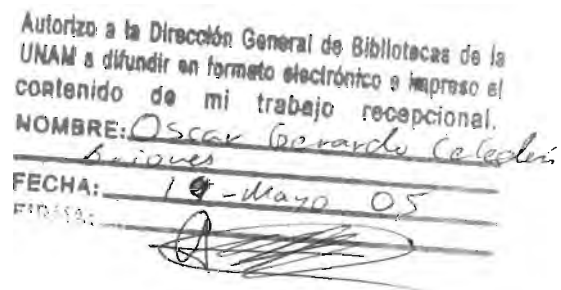 Autorizo a la Dirección General de Bibliotecas de la
UNAM a difundir en formato electrónico e impreso el
contenido de mi trabajo recepcional.
NOMBRE: Oscar Gerardo Celedón
Briones
FECHA: -Mayo 05
FIRMA: